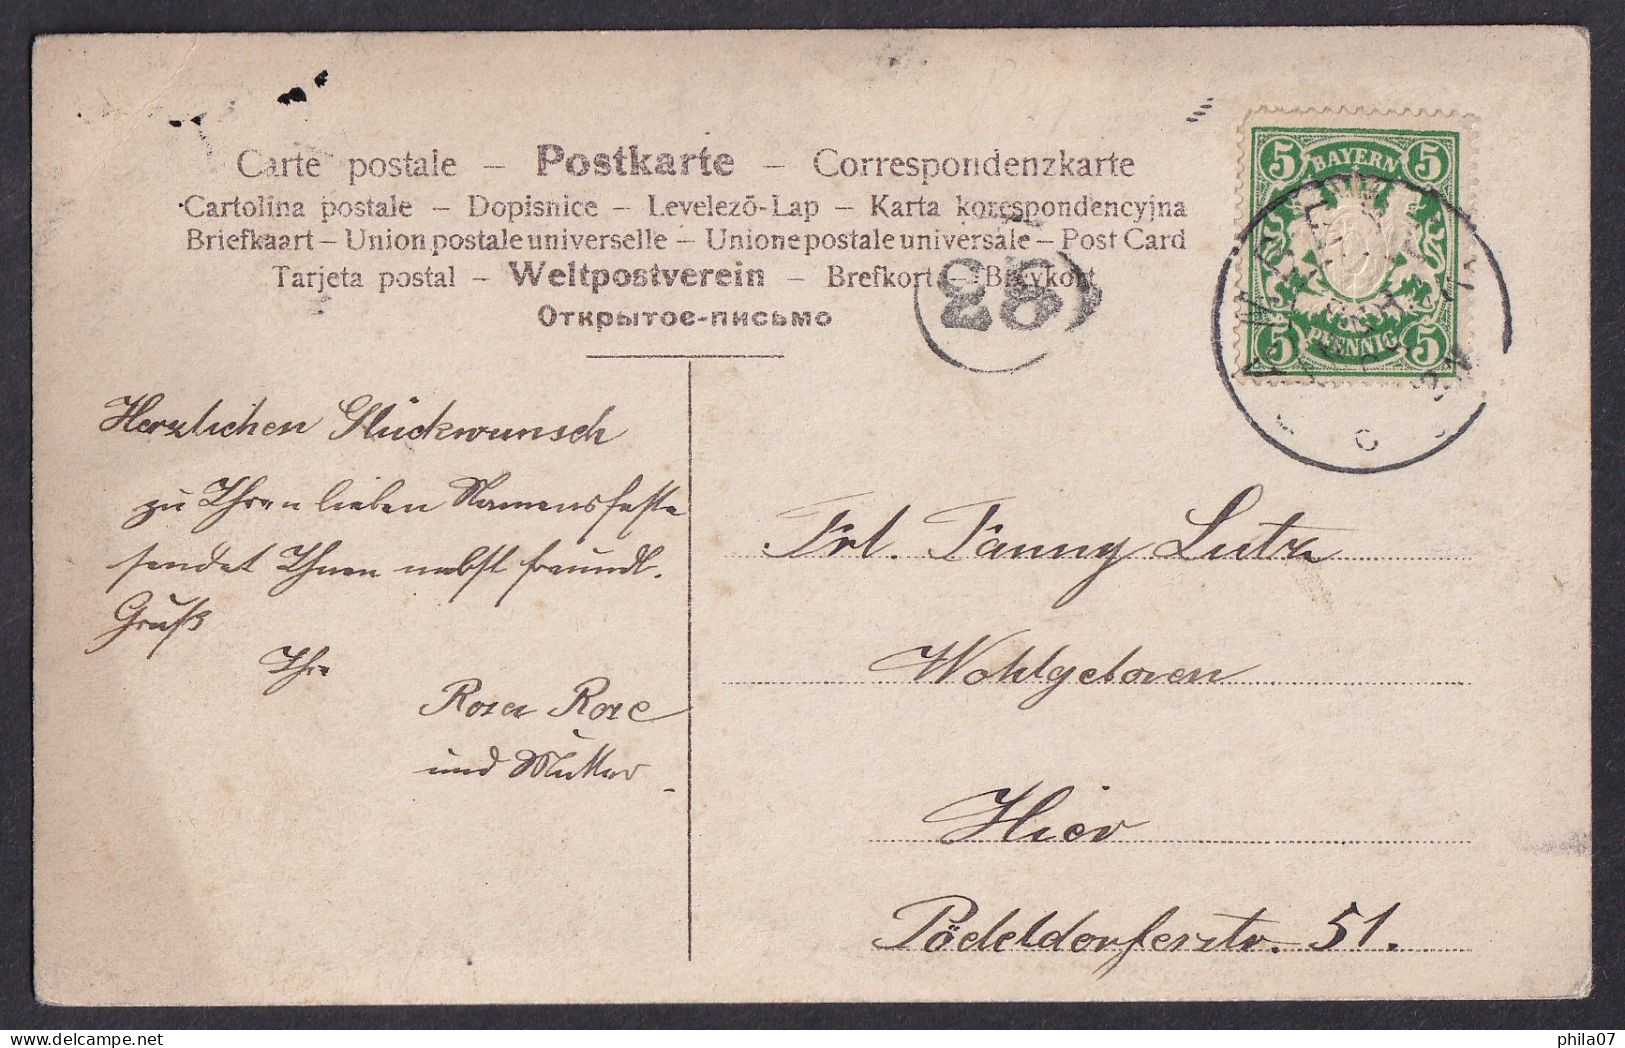 Carte postale – Postkarte – Correspondenzkarte
Cartolina postale – Dopisnice – Levelező-Lap – Karta korespondencyjna
Briefkaart – Union postale universelle – Unione postale universale – Post Card
Tarjeta postal – Weltpostverein – Brefkort – Brevkort
Открытое-письмо
5 BAYERN 5
5 PFENNIG 5
28
Herzlichen Glückwunsch
zu Ihren lieben Namensfeste
sendet Ihnen nebst freundl.
Gruß
Ihre
Rosa Rose
und Mutter
Frl. Fanny Lutz
Wohlgeboren
Hier
Pödeldorferstr. 51.
phila07